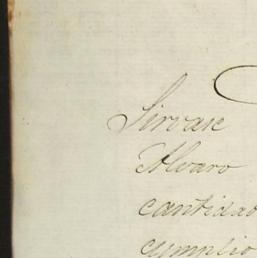 Sirvase
Alvaro
cantidad
cumplio